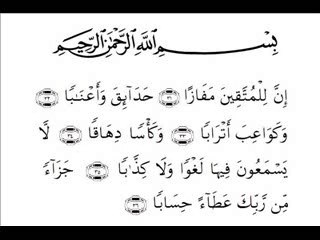 بِسْمِ اللَّهِ الرَّحْمَٰنِ الرَّحِيمِ
إِنَّ لِلْمُتَّقِينَ مَفَازًا ۝٣١ حَدَآئِقَ وَأَعْنَـٰبًا ۝٣٢
وَكَوَاعِبَ أَتْرَابًا ۝٣٣ وَكَأْسًا دِهَاقًا ۝٣٤ لَّا
يَسْمَعُونَ فِيهَا لَغْوًا وَلَا كِذَّٰبًا ۝٣٥ جَزَآءً
مِّن رَّبِّكَ عَطَآءً حِسَابًا ۝٣٦